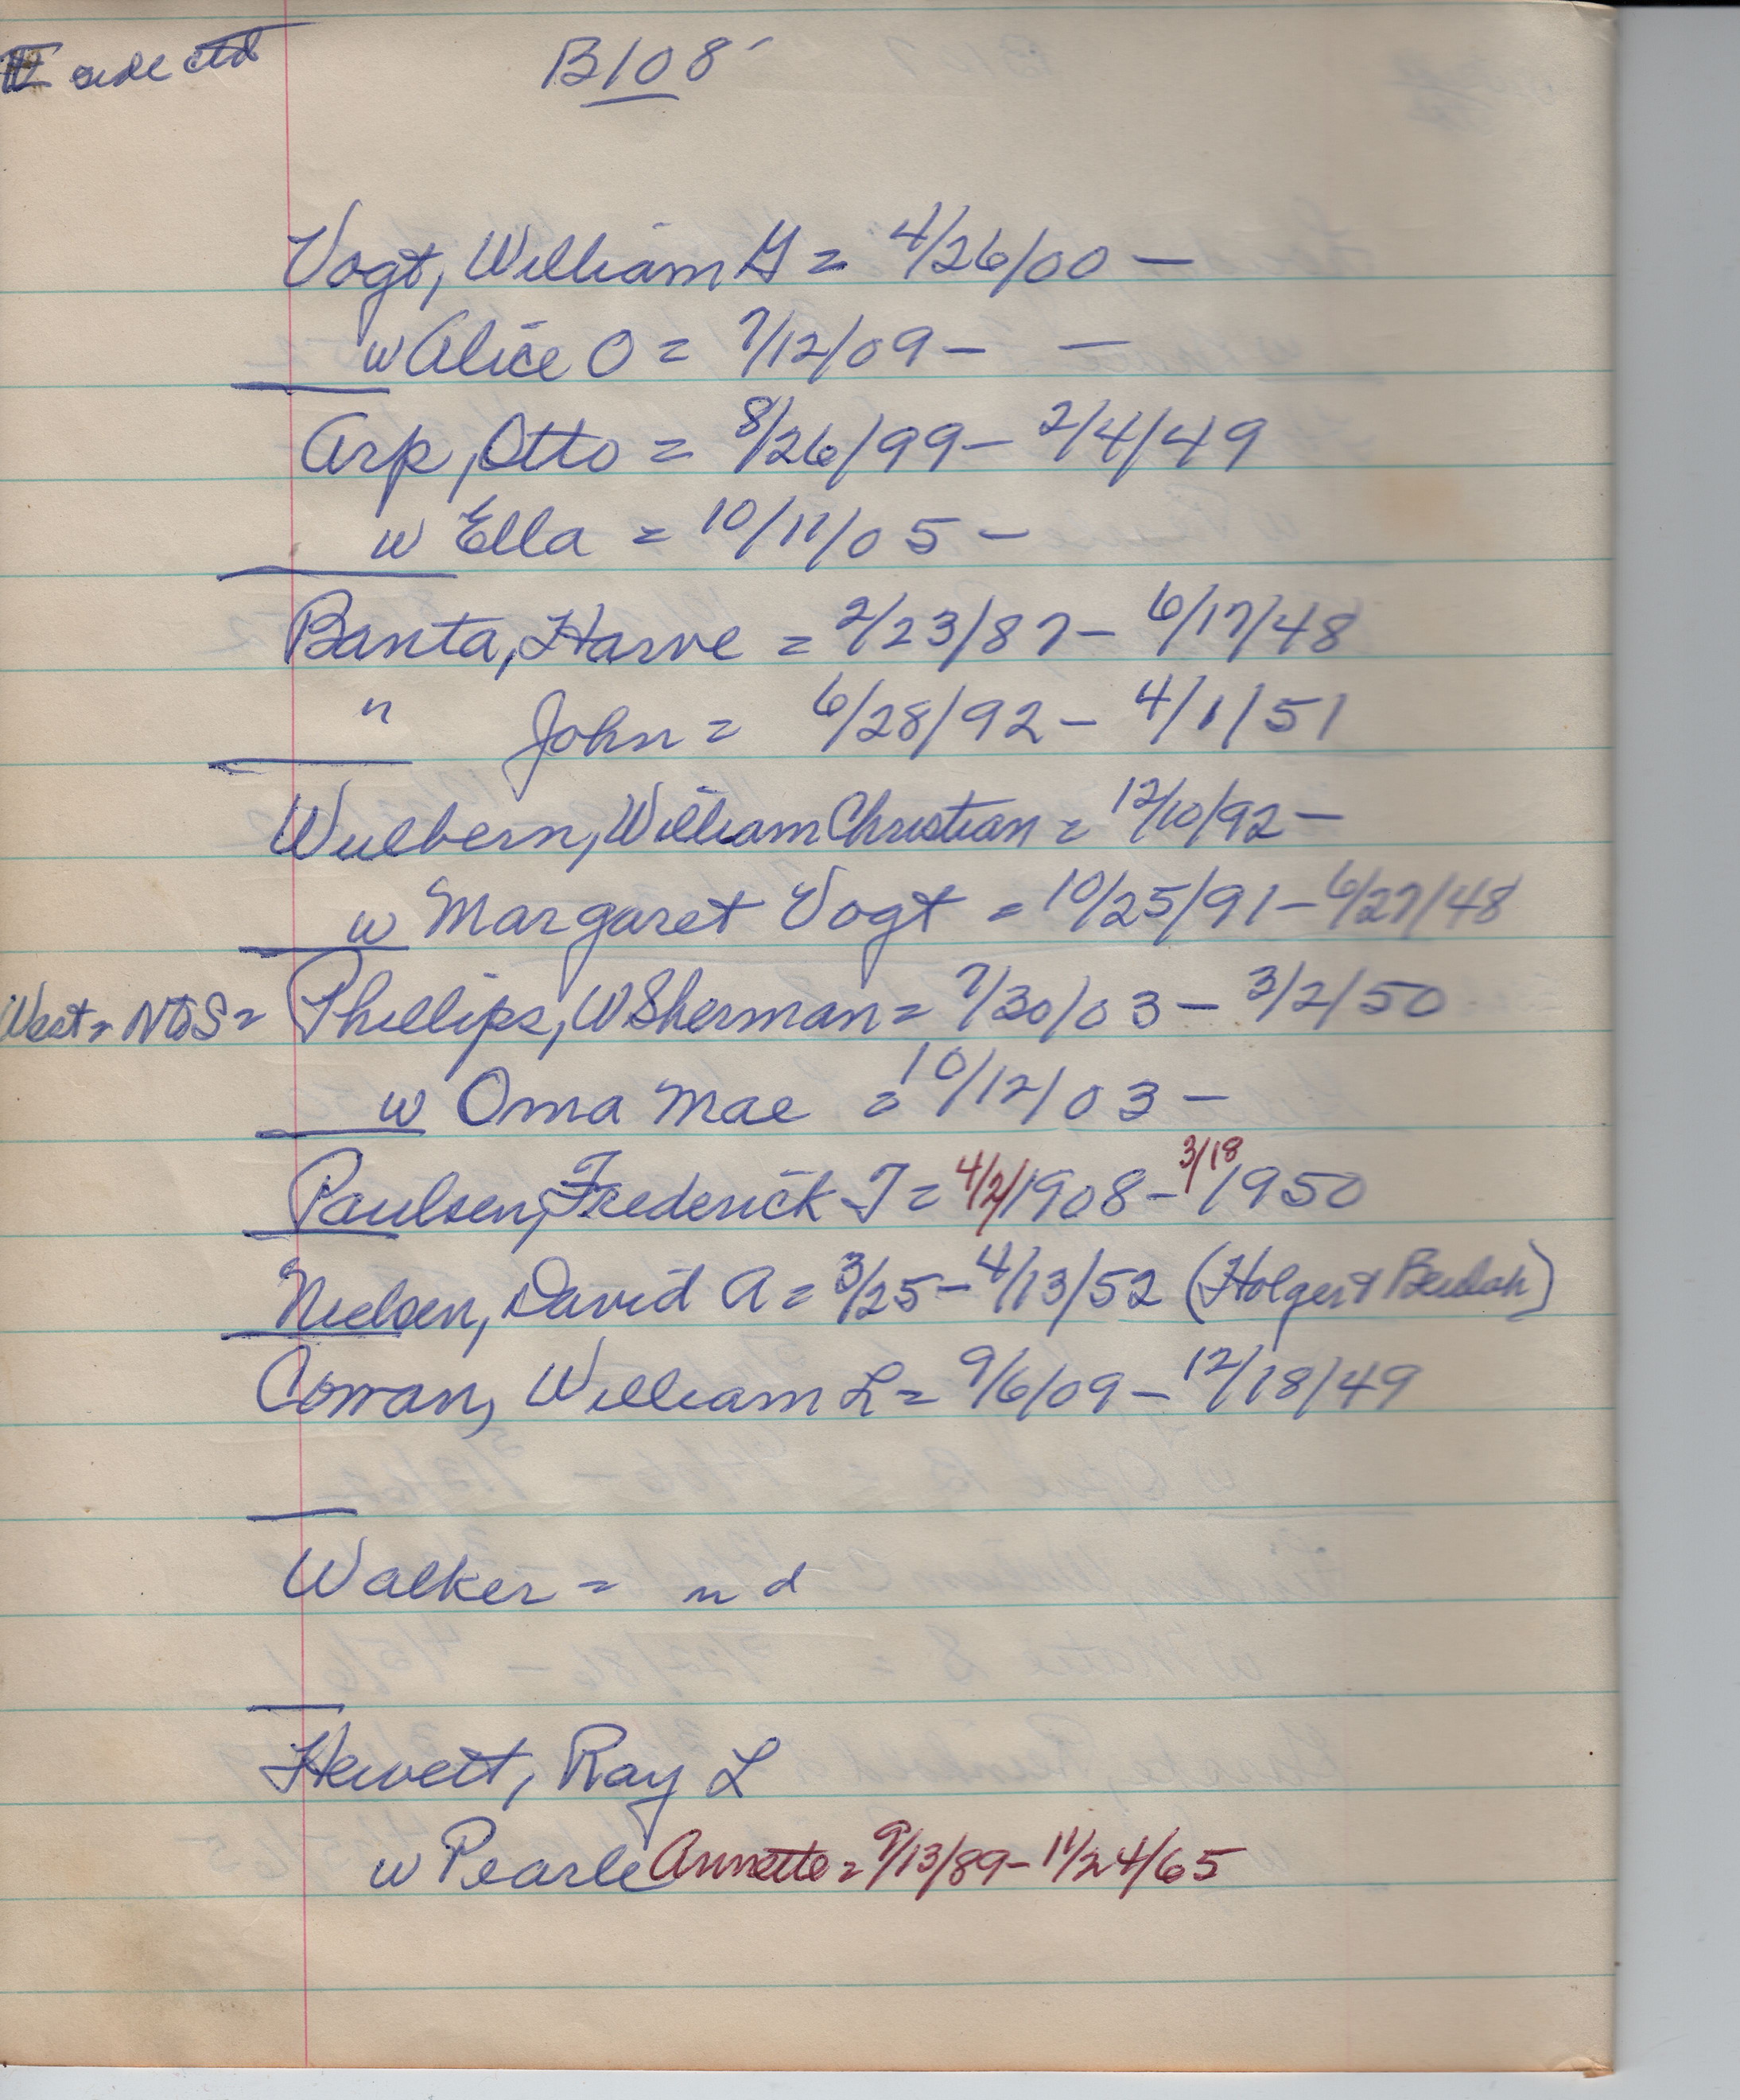 side ctd B108
Vogt, William G = 4/26/00 —
w Alice O = 7/12/09 — —
Arp, Otto = 8/26/99 — 2/4/49
w Ella = 10/11/05 —
Banta, Harve = 2/23/87 — 6/17/48
" John = 6/28/92 — 4/1/51
Wulbern, William Christian = 12/10/92 —
w Margaret Vogt = 10/25/91 — 6/27/48
West = N to S = Phillips, W Sherman = 7/30/03 — 3/2/50
w Oma Mae = 10/12/03 —
Paulsen, Frederick J = 4/2/1908 — 3/18/1950
Nielsen, David A = 3/25 — 4/13/52 (Holger & Beulah)
Cowan, William L = 9/6/09 — 12/18/49
Walker = n d
Hewett, Ray L
w Pearle Annette = 9/13/89 — 11/24/65